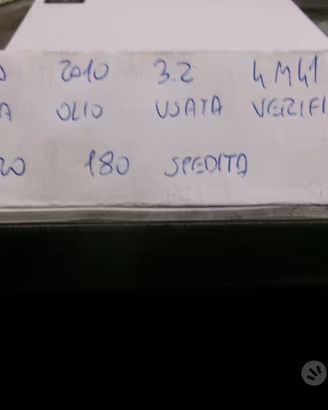 2010 3.2 4M41
OLIO USATA VERIFI
20 180 SPEDITA